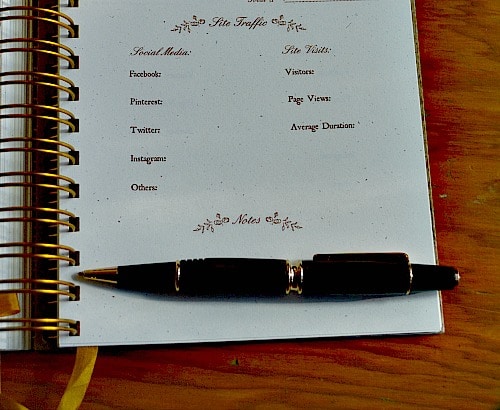 Site Traffic
Social Media:
Site Visits:
Facebook:
Visitors:
Pinterest:
Page Views:
Twitter:
Average Duration:
Instagram:
Others:
Notes